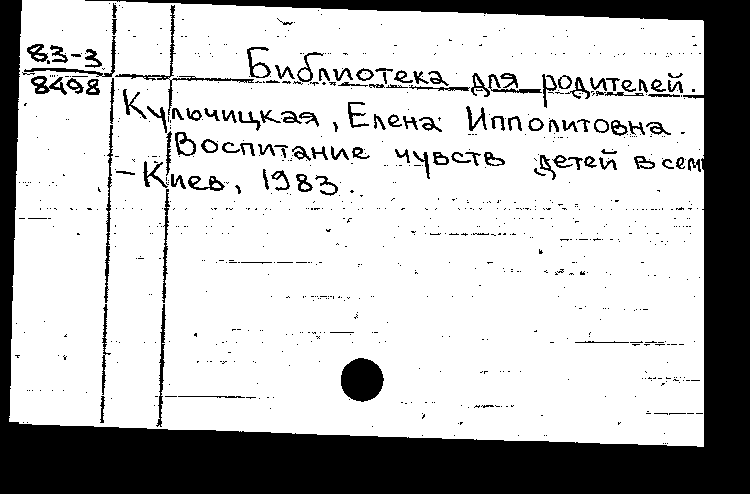 83-3
8498
Библиотека для родителей.
Кульчицкая, Елена Ипполитовна.
Воспитание чувств детей в сем
- Киев, 1983.